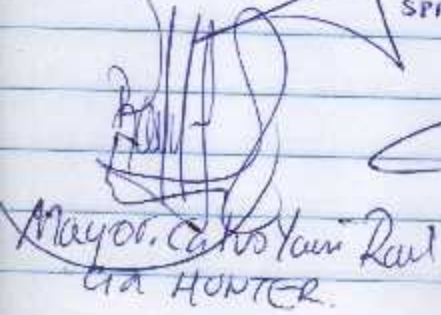 SPI
Mayor. Calvo Yauri Raul
Cia HUNTER.